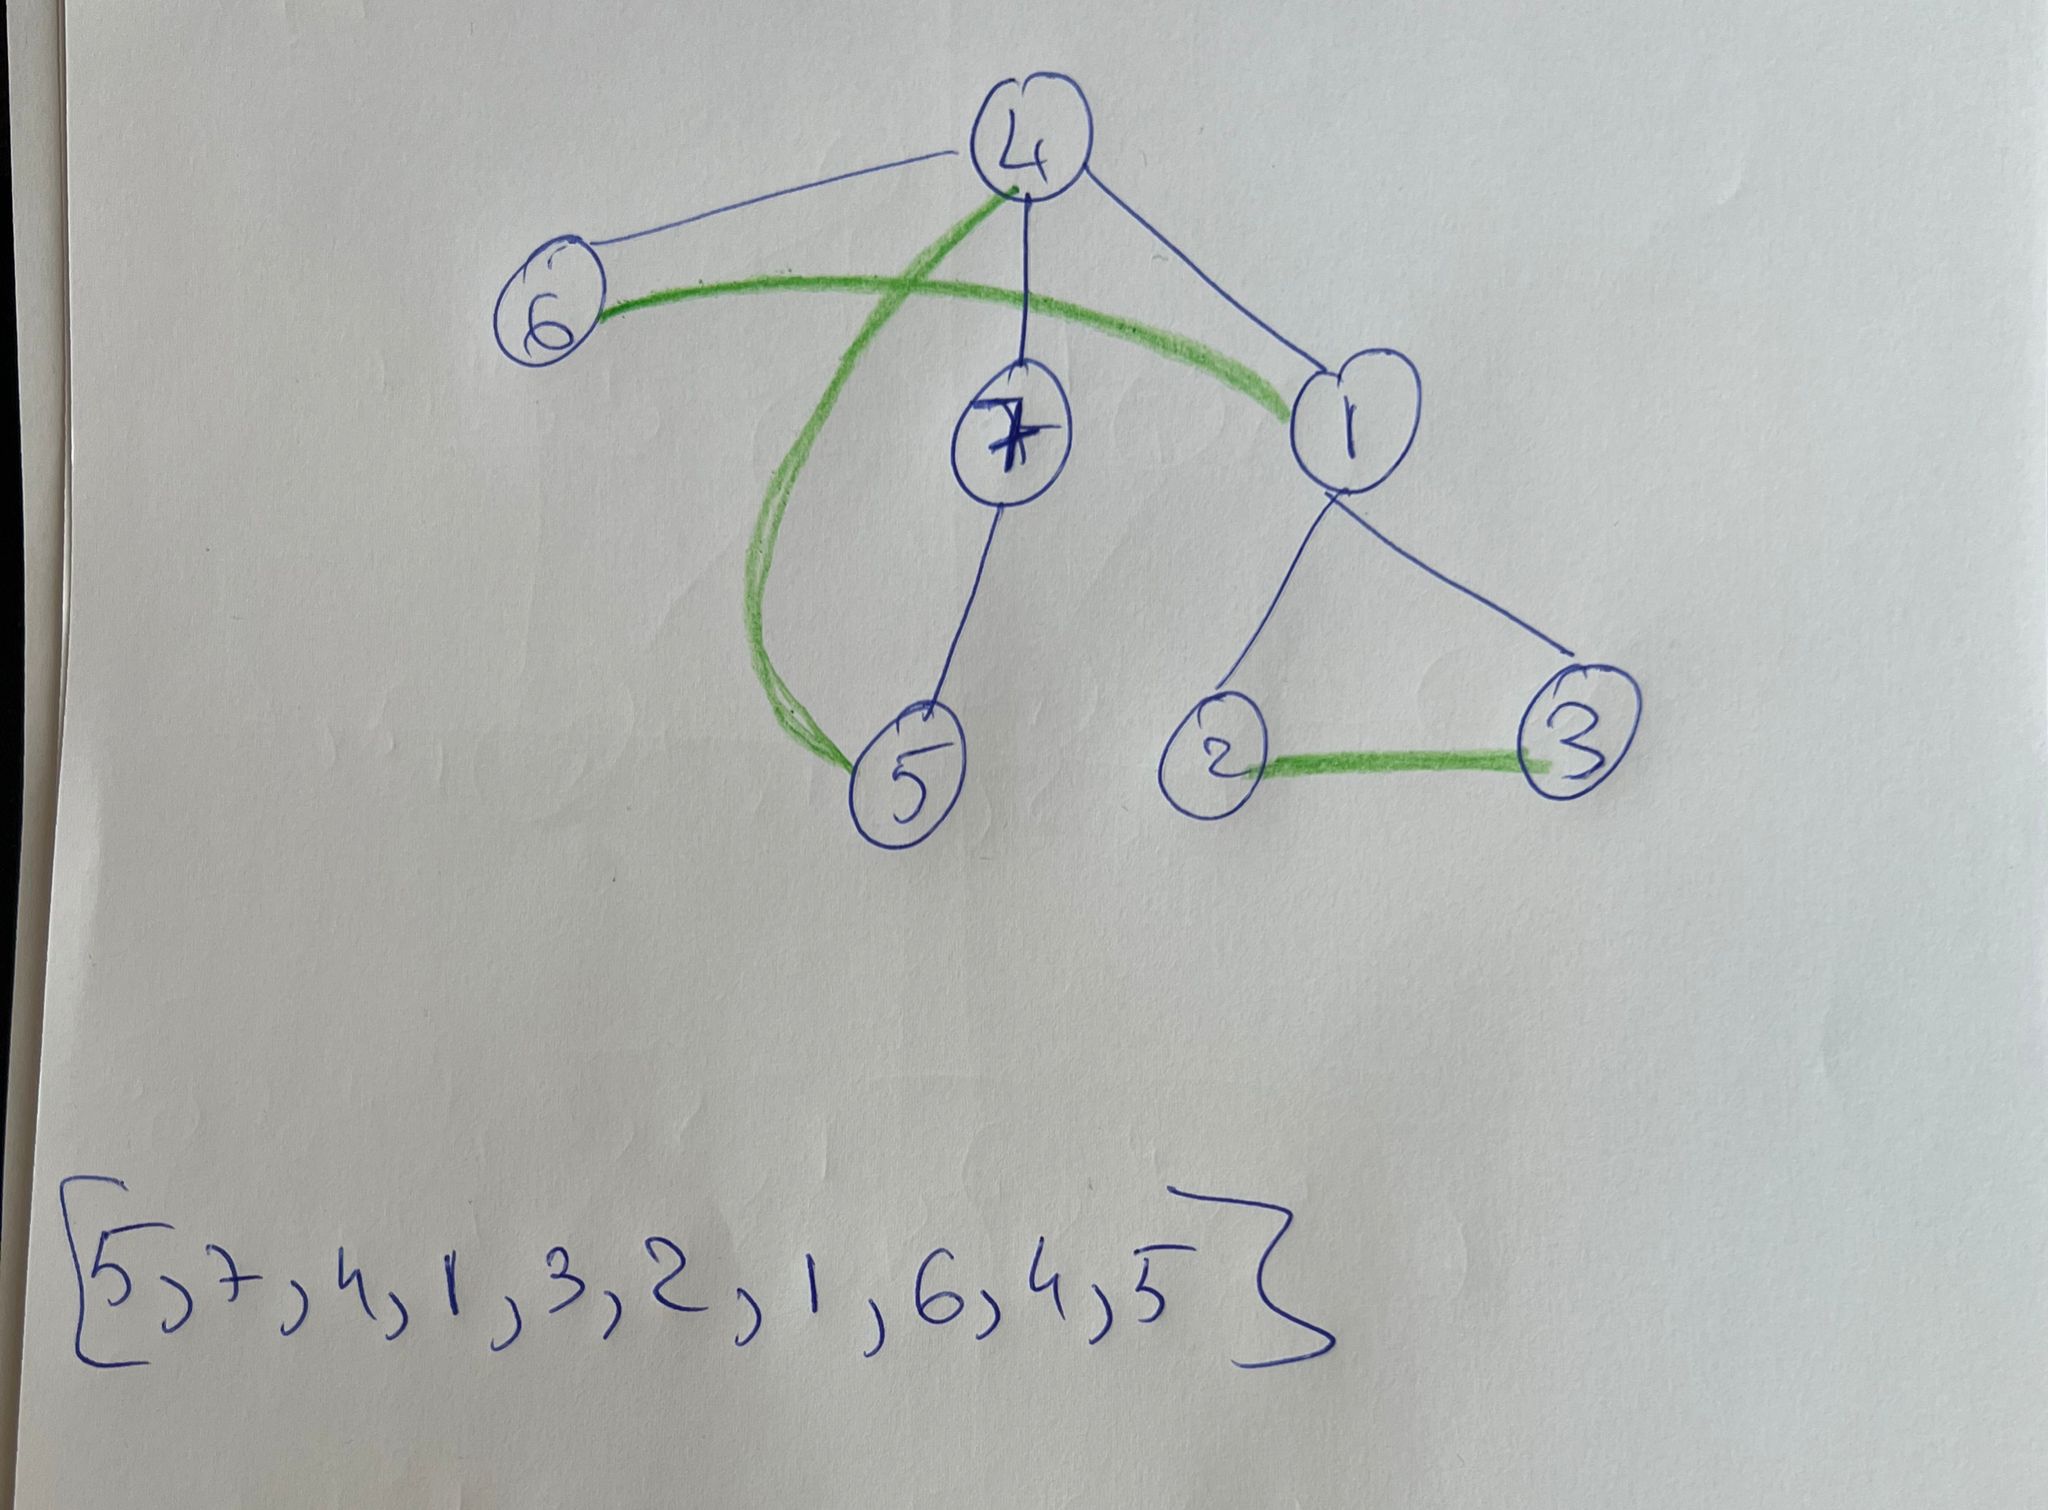 4
6
7
1
5
2
3
[5,7,4,1,3,2,1,6,4,5]